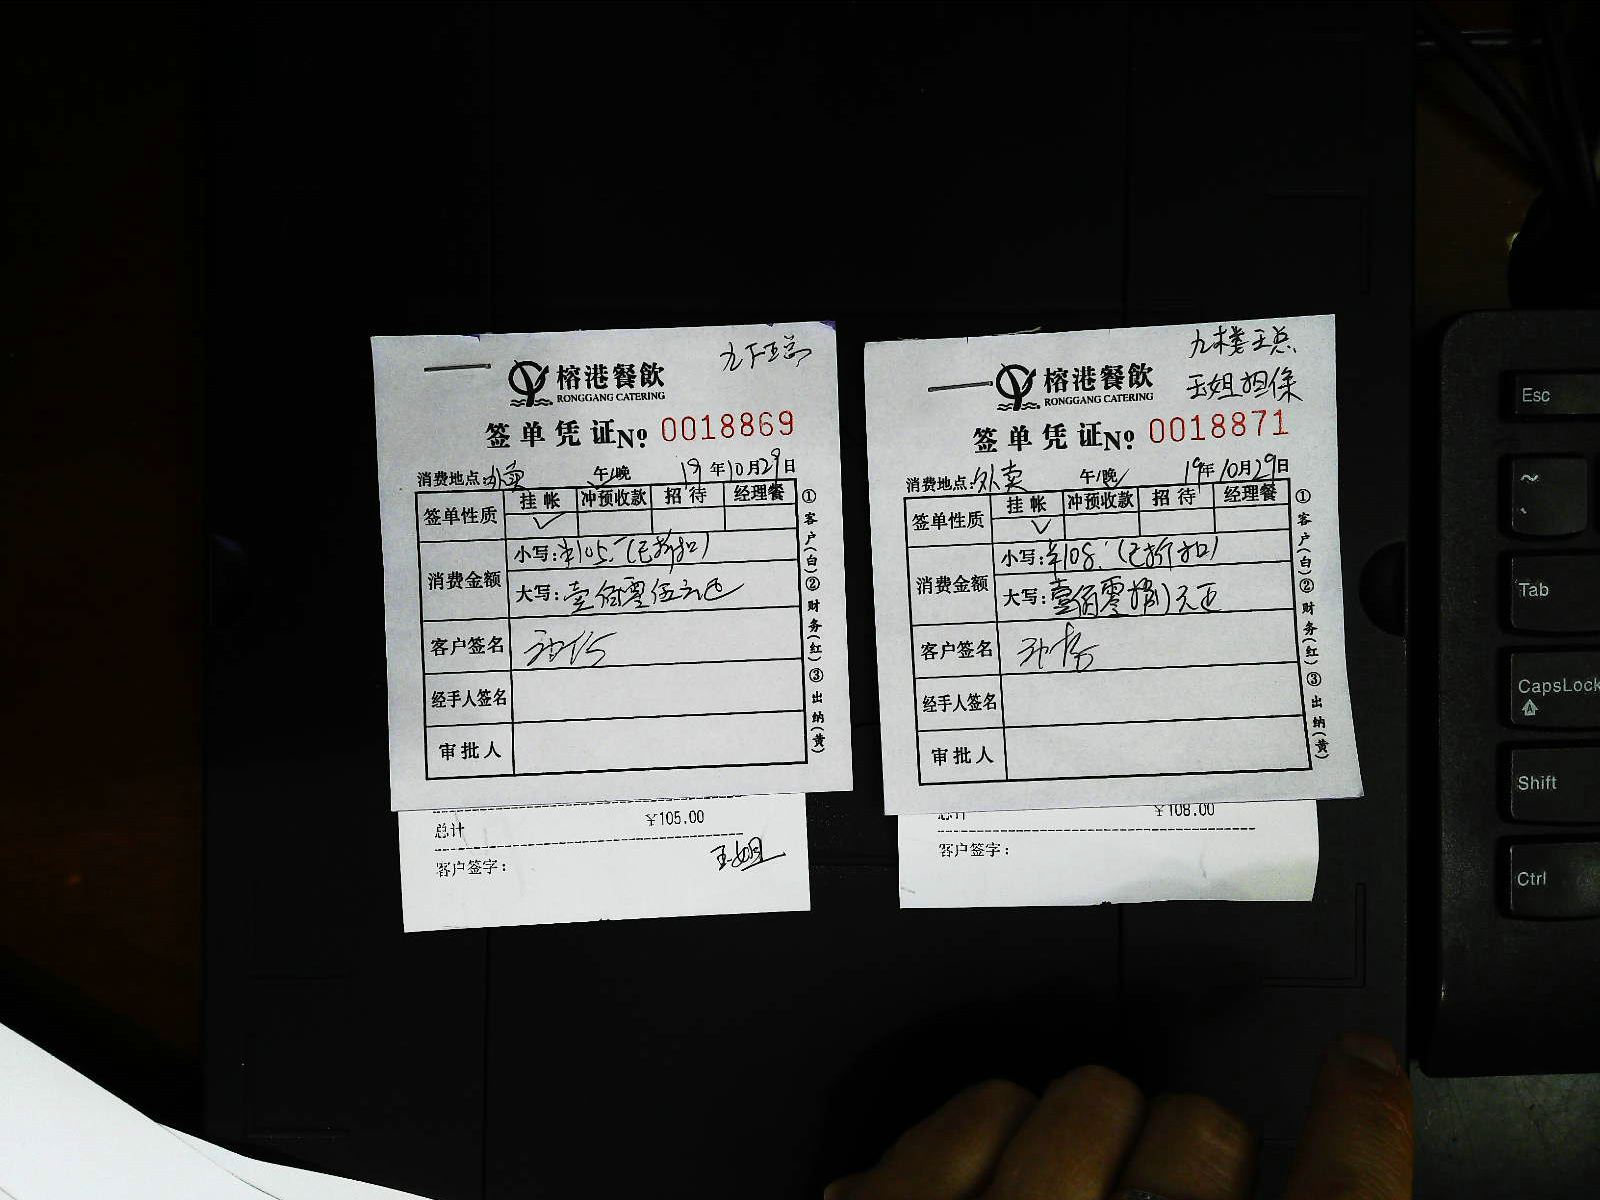 榕港餐飲
RONGGANG CATERING
签单凭证 №0018869
消费地点:外卖 午/晚 19年10月29日
签单性质 挂帐 冲预收款 招待 经理餐
✓
消费金额
小写:¥105.-(已折扣)
大写:壹佰零伍元正
客户签名
经手人签名
审批人
①客户(白)②财务(红)③出纳(黄)
总计 ¥105.00
客户签字: 王姐
九楼王总
王姐担保
榕港餐飲
RONGGANG CATERING
签单凭证 №0018871
消费地点:外卖 午/晚 19年10月29日
签单性质 挂帐 冲预收款 招待 经理餐
✓
消费金额
小写:¥108.-(已折扣)
大写:壹佰零捌元正
客户签名
经手人签名
审批人
①客户(白)②财务(红)③出纳(黄)
总计 ¥108.00
客户签字:
Esc
~
Tab
CapsLock
A
Shift
Ctrl